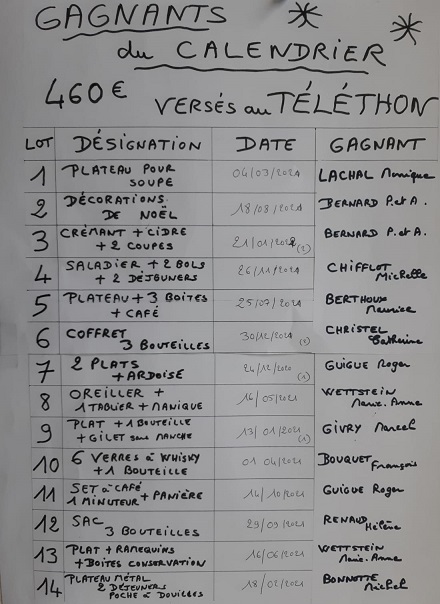 GAGNANTS
du CALENDRIER
460€ VERSÉS au TÉLÉTHON
LOT DÉSIGNATION DATE GAGNANT
1 PLATEAU POUR SOUPE 04/03/2021 LACHAL Monique
2 DÉCORATIONS DE NOËL 18/08/2021 BERNARD P. et A.
3 CRÉMANT + CIDRE + 2 COUPES 21/01/2022 (2) BERNARD P. et A.
4 SALADIER + 2 BOLS + 2 DÉJEUNERS 26/11/2021 CHIFFLOT Michelle
5 PLATEAU + 3 BOITES + CAFÉ 25/07/2021 BERTHOUX Maurice
6 COFFRET 3 BOUTEILLES 30/12/2021 CHRISTEL Catherine
7 2 PLATS + ARDOISE 24/12/2020 (1) GUIGUE Roger
8 OREILLER + 1 TABLIER + MANIQUE 16/05/2021 WETTSTEIN Marie. Anne
9 PLAT + 1 BOUTEILLE + GILET sans MANCHE 13/01/2021 (1) GIVRY Marcel
10 6 VERRES à WHISKY + 1 BOUTEILLE 01 04/2021 BOUQUET François
11 SET à CAFÉ 1 MINUTEUR + PANIÈRE 14/10/2021 GUIGUE Roger
12 SAC 3 BOUTEILLES 29/09/2021 RENAUD Hélène
13 PLAT + RAMEQUINS + BOITES CONSERVATION 16/06/2021 WETTSTEIN Marie. Anne
14 PLATEAU MÉTAL 2 DÉJEUNERS POCHE à DOUILLES 18/02/2021 BONNOTTE Michel